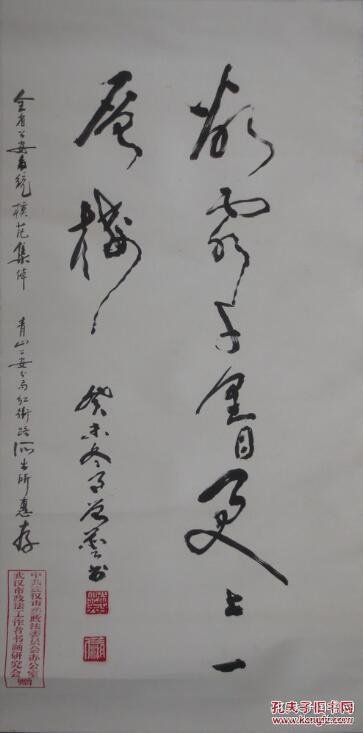 欲穷千里目更上一
层楼
癸未冬月 书
全省公安系统模范集体 青山公安分局红卫路派出所惠存
中共武汉市委政法委员会办公室
武汉市政法工作者书画研究会赠
孔夫子旧书网